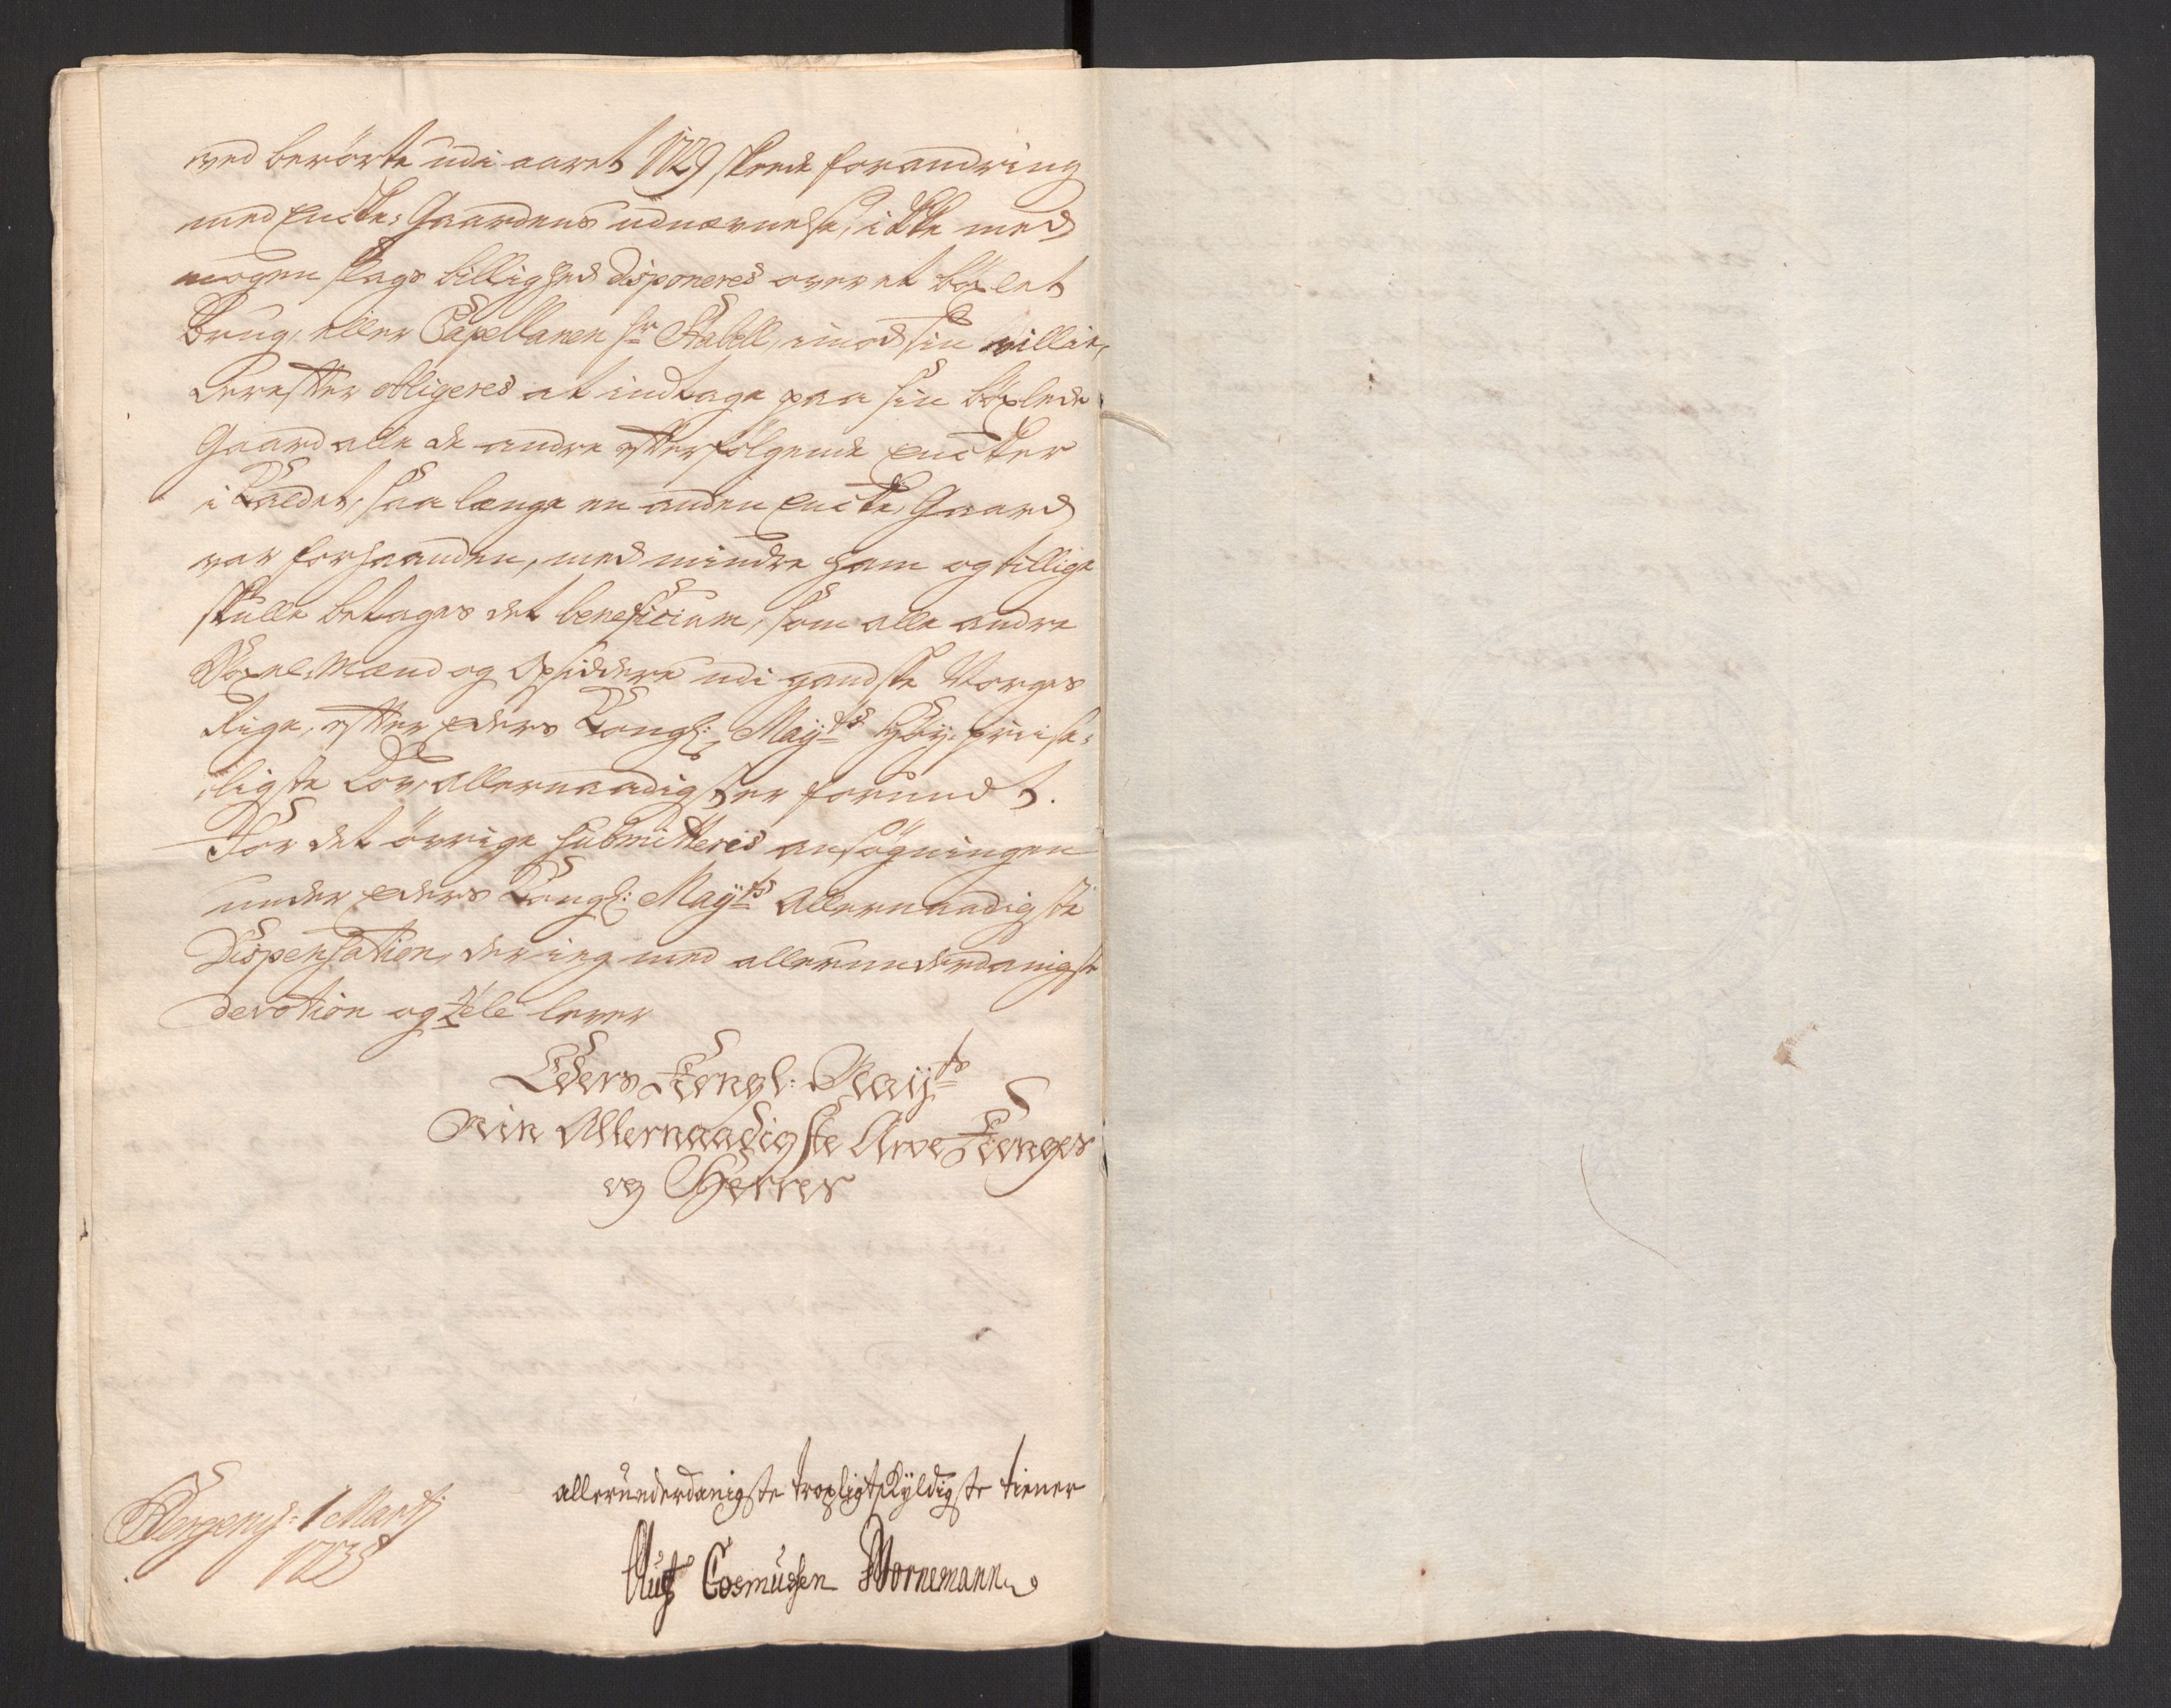 ved berörte udi aaret 1729 skeede forandring
med Encke: Gaardens udnævnelse, ikke med
nogen slags billighed disponeres over et böxlet
Brug, eller Capellanen Hr Stabell, imod sin villie,
derefter obligeres at indtage paa sin böxlede
Gaard alle de andre efterfölgende Encker
i Kaldet, saa længe en anden Encke Gaard
var forhaanden, med mindre ham og tillige
skulle betages det beneficium, som alle andre
Böxel-Mænd og Opsiddere udi gandske Norges
Rige, efter Eders Kongl: Mayts Höy-priise-
ligste Lov, allernaadigst er forundt.
For det övrige submitteris ansögningen
under Eders Kongl: Mayts Allernaadigste
Dispensation, der ieg med allerunderdanigste
devotion og zele lever
Eders Kongl: Mayts
Min Allernaadigste Arve Konges
og Herres
allerunderdanigste tropligtskyldigste tiener
Bergen d: 1 Martj
1738
Cosmussen Bornemann